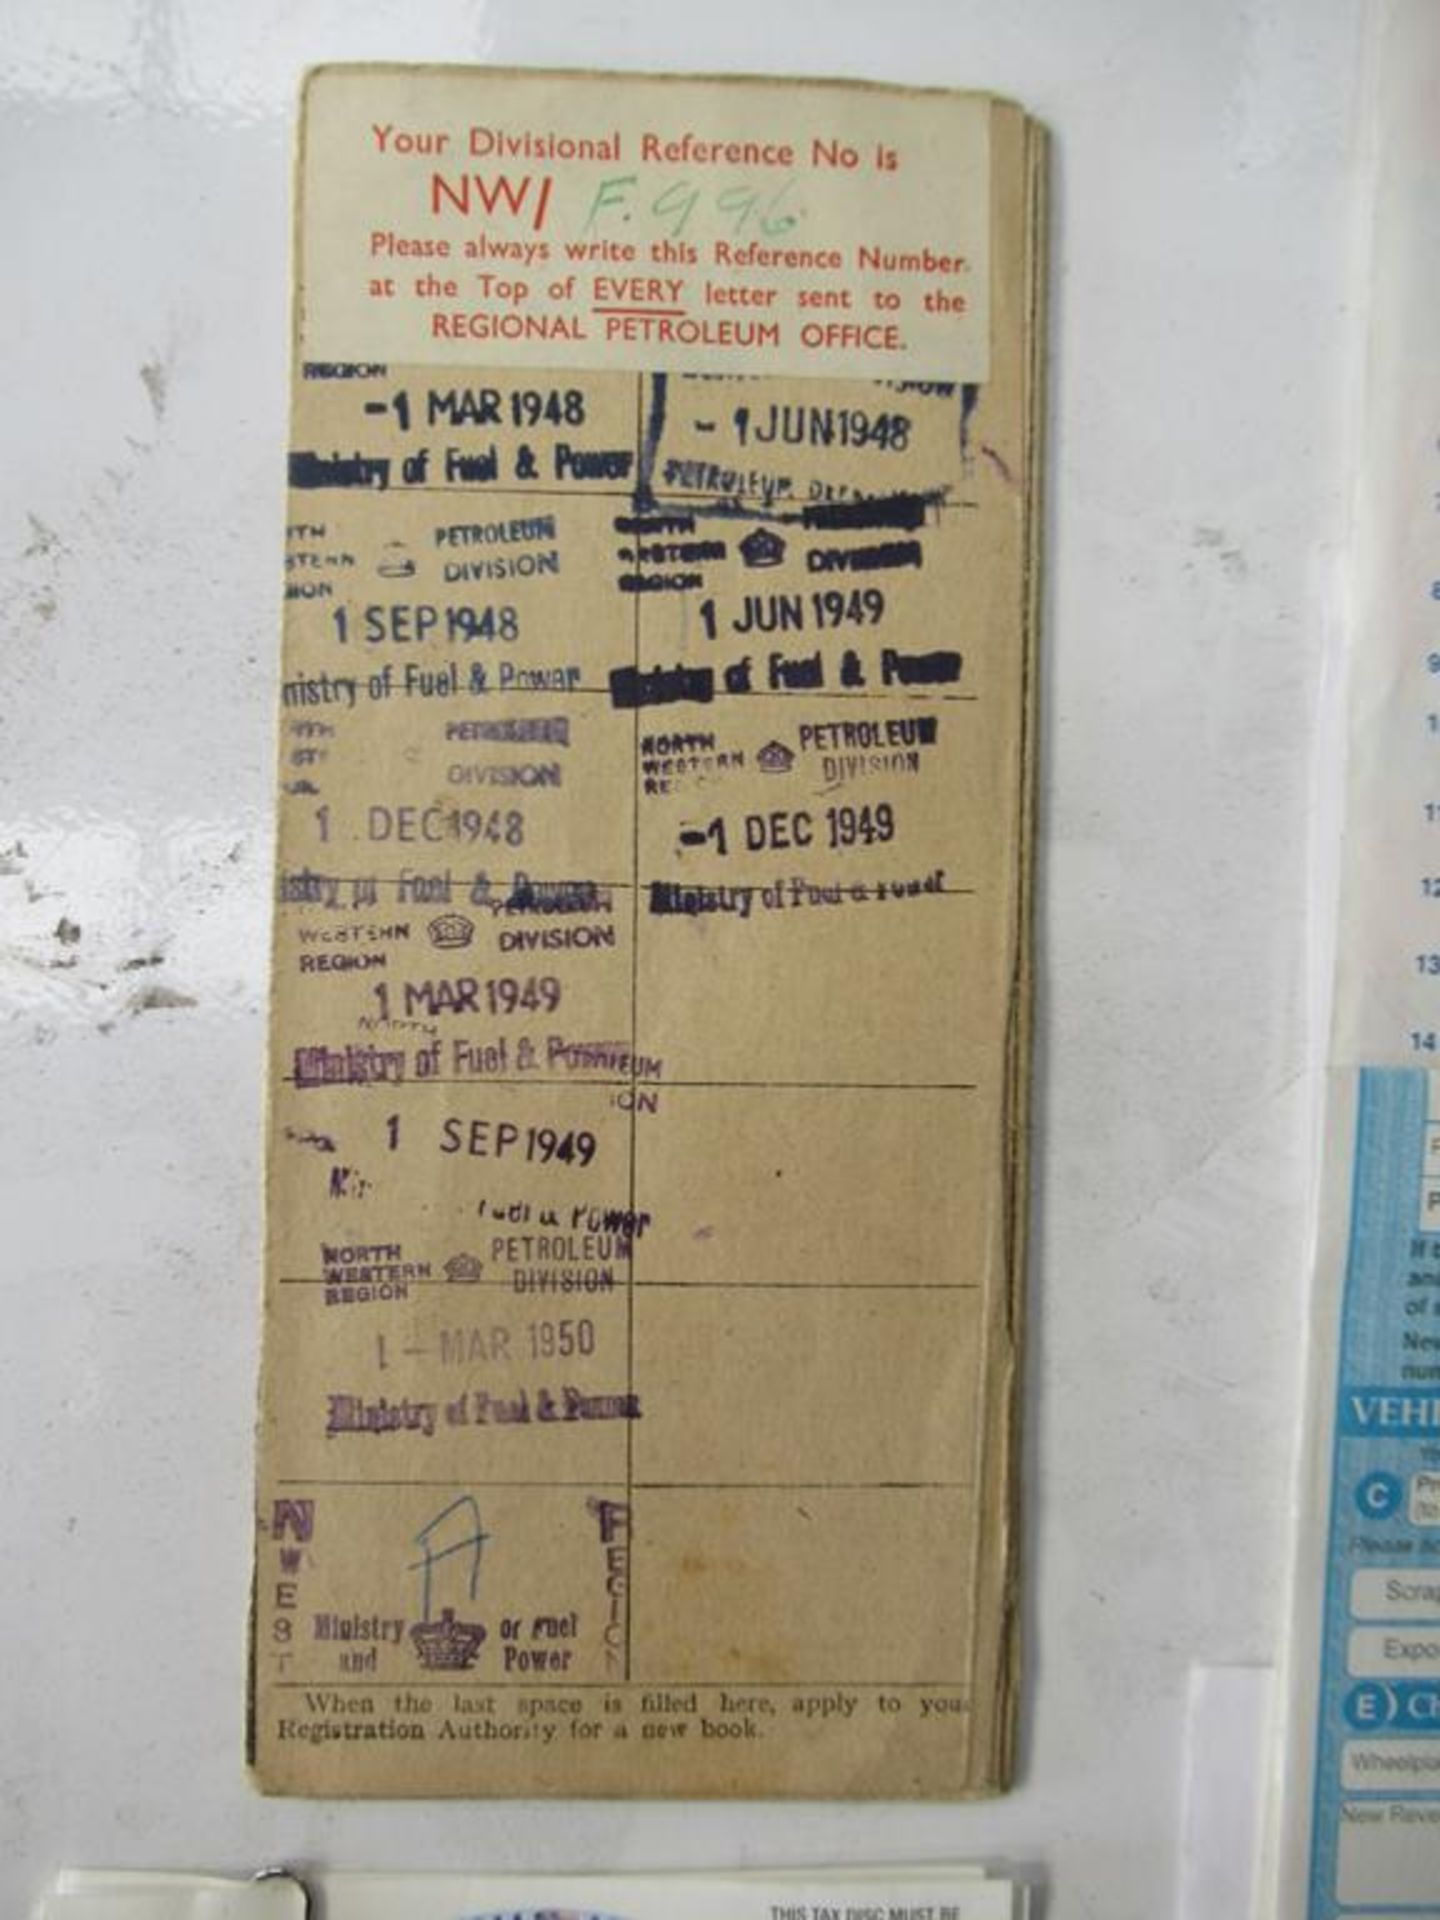 Your Divisional Reference No is
NW/ F.996
Please always write this Reference Number
at the Top of EVERY letter sent to the
REGIONAL PETROLEUM OFFICE.
REGION
-1 MAR 1948
Ministry of Fuel & Power
- 1 JUN 1948
PETROLEUM
PETROLEUM
DIVISION
1 SEP 1948
nistry of Fuel & Power
NORTH
WESTERN DIVISION
REGION
1 JUN 1949
Ministry of Fuel & Power
PETROLEUM
DIVISION
1 DEC 1948
istry of Fuel & Power
NORTH PETROLEUM
WESTERN DIVISION
-1 DEC 1949
Ministry of Fuel & Power
PETROLEUM
WESTERN DIVISION
REGION
1 MAR 1949
NORTH
Ministry of Fuel & Power
EUM
ION
1 SEP 1949
Fuel & Power
NORTH PETROLEUM
WESTERN DIVISION
REGION
1 - MAR 1950
Ministry of Fuel & Power
N WEST REGION
Ministry of Fuel
and Power
When the last space is filled here, apply to your
Registration Authority for a new book.
9
10
11
12
13
14
VEHI
C
Scrap
Expo
E) Ch
Wheelpla
New Reve
THIS TAX DISC MUST BE